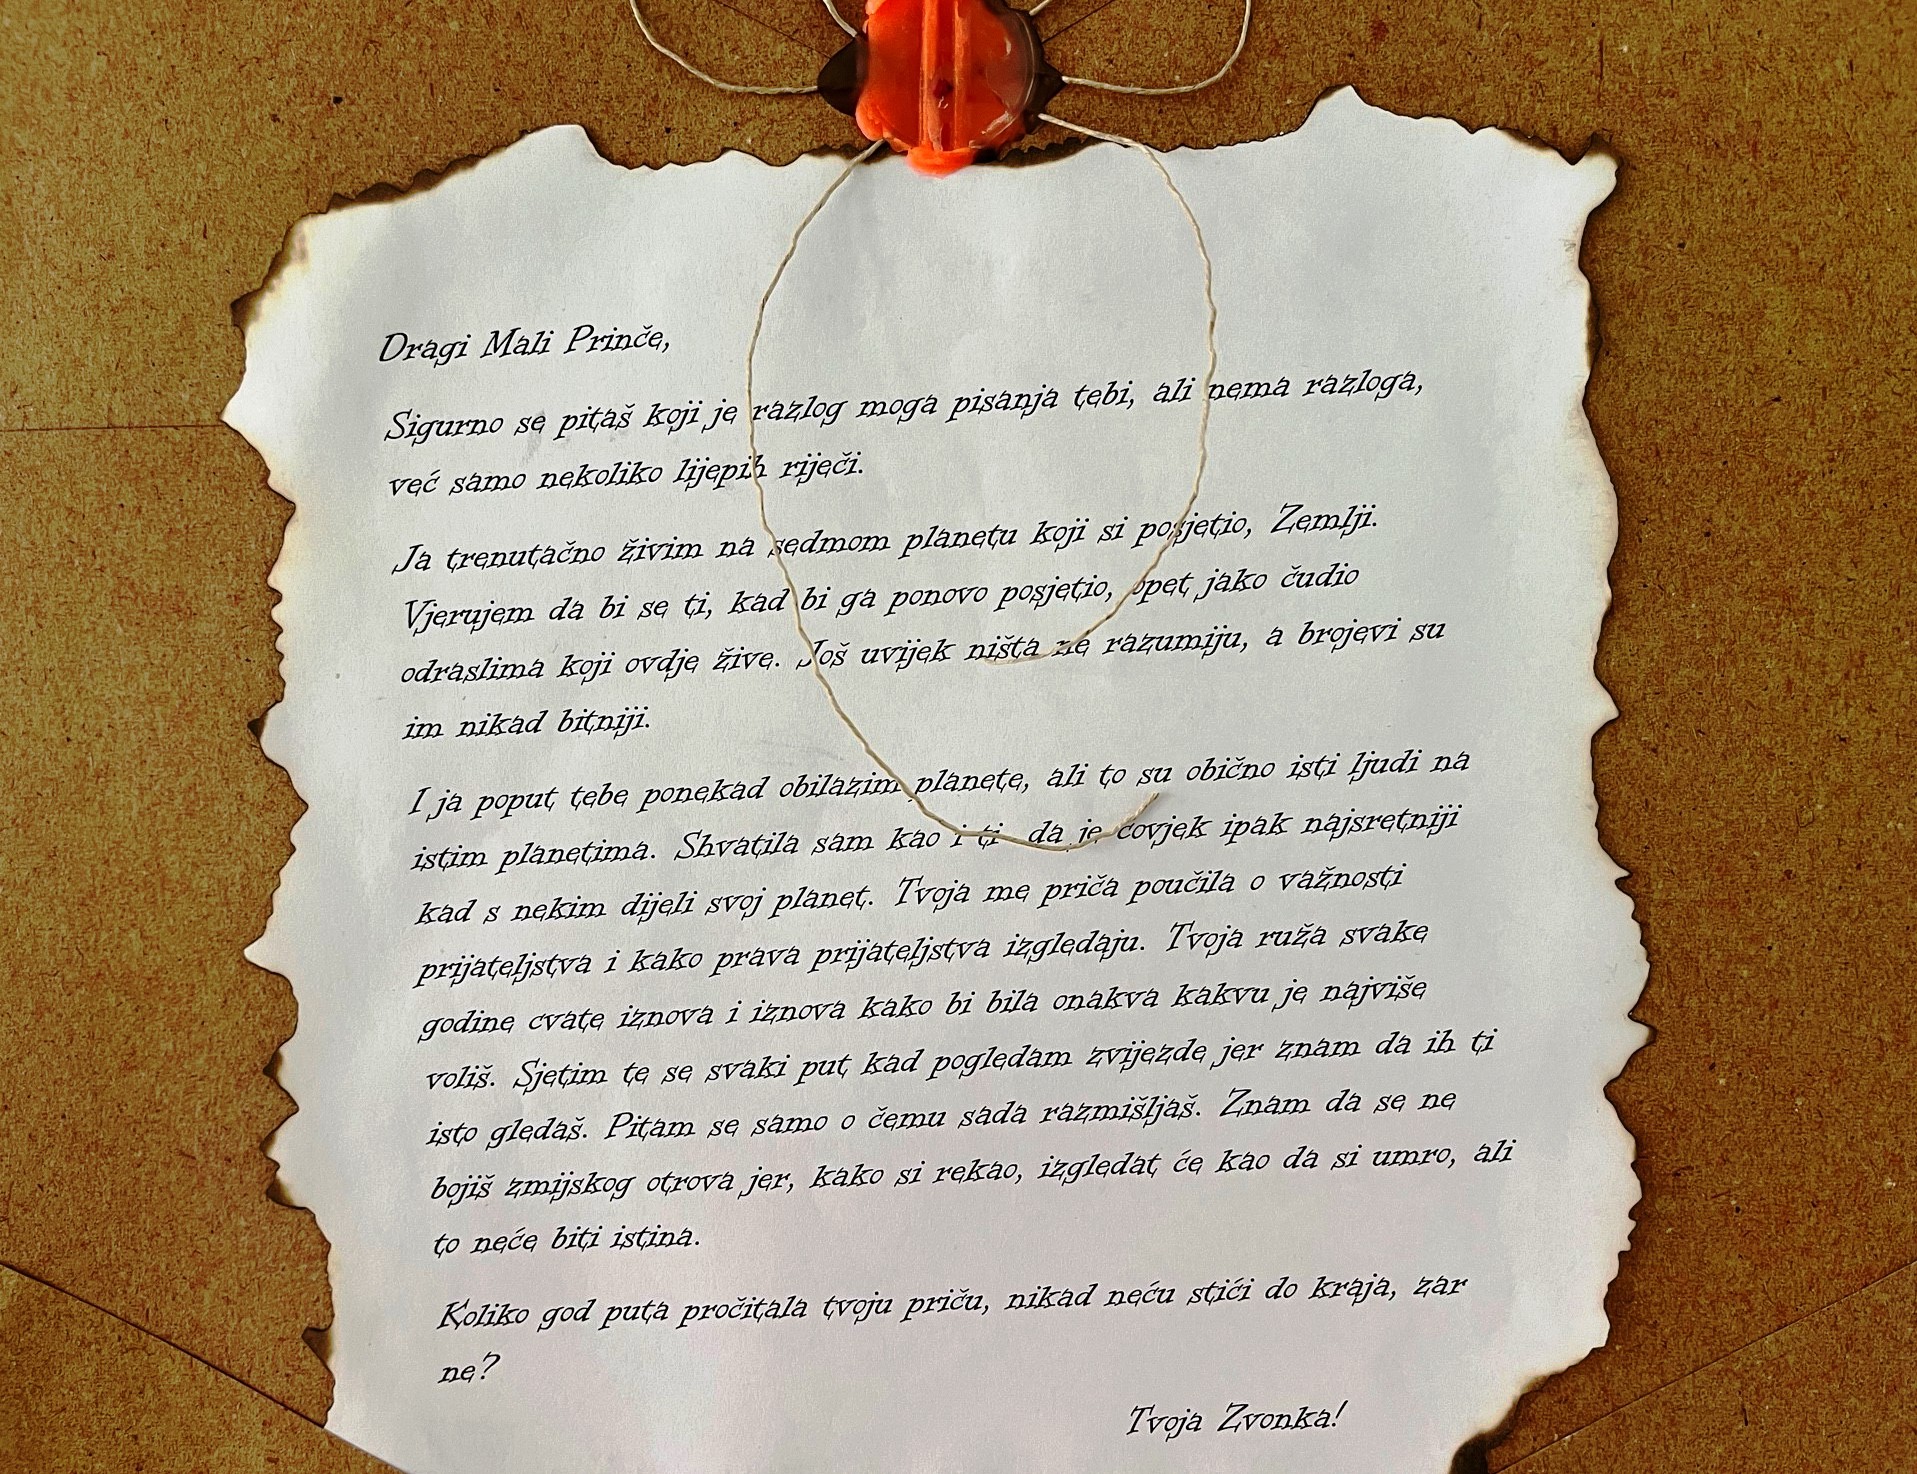 Dragi Mali Prinče,
Sigurno se pitaš koji je razlog moga pisanja tebi, ali nema razloga,
već samo nekoliko lijepih riječi.
Ja trenutačno živim na sedmom planetu koji si posjetio, Zemlji.
Vjerujem da bi se ti, kad bi ga ponovo posjetio, opet jako čudio
odraslima koji ovdje žive. Još uvijek ništa ne razumiju, a brojevi su
im nikad bitniji.
I ja poput tebe ponekad obilazim planete, ali to su obično isti ljudi na
istim planetima. Shvatila sam kao i ti da je čovjek ipak najsretniji
kad s nekim dijeli svoj planet. Tvoja me priča poučila o važnosti
prijateljstva i kako prava prijateljstva izgledaju. Tvoja ruža svake
godine cvate iznova i iznova kako bi bila onakva kakvu je najviše
voliš. Sjetim te se svaki put kad pogledam zvijezde jer znam da ih ti
isto gledaš. Pitam se samo o čemu sada razmišljaš. Znam da se ne
bojiš zmijskog otrova jer, kako si rekao, izgledat će kao da si umro, ali
to neće biti istina.
Koliko god puta pročitala tvoju priču, nikad neću stići do kraja, zar
ne?
Tvoja Zvonka!